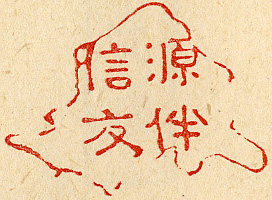 源伴
信友